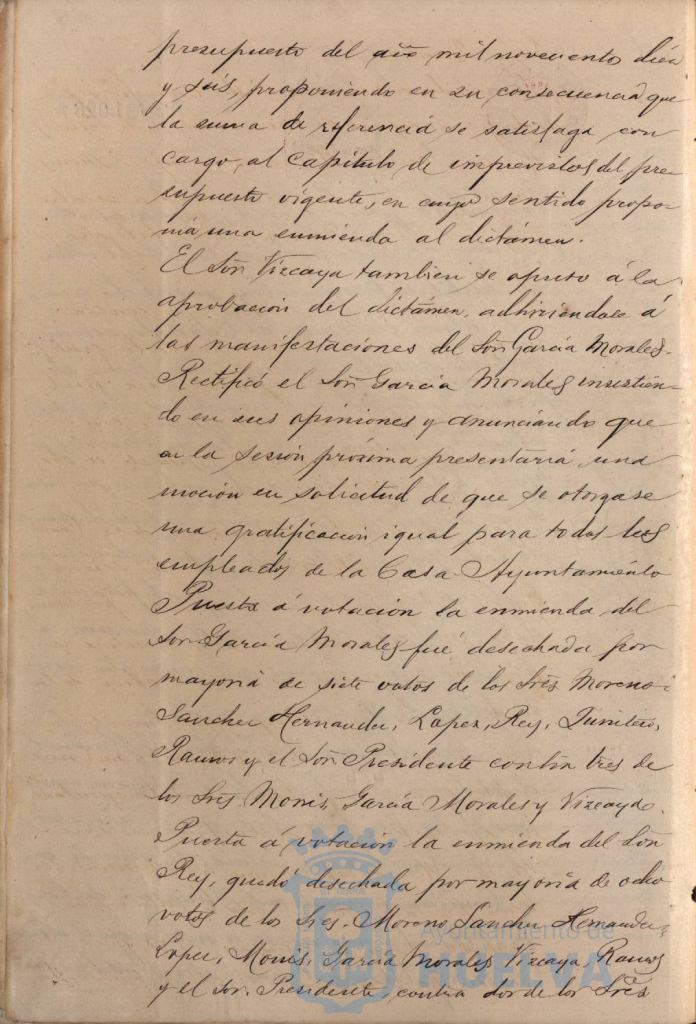 presupuesto del año mil novecientos diez
y seis, proponiendo en su consecuencia que
la suma de referencia se satisfaga con
cargo, al Capítulo de imprevistos del pre-
supuesto vigente, en cuyo sentido propo-
nia una enmienda al dictámen.
El Sôr. Vizcaya tambien se opuso á la
aprobacion del dictámen, adhiriendose á
las manifestaciones del Sôr. García Morales.
Rectificó el Sôr. García Morales insistien-
do en sus opiniones y anunciando que
en la sesión próxima presentaría una
moción en solicitud de que se otorgase
una gratificacion igual para todos los
empleados de la Casa-Ayuntamiento
Puesta á votación la enmienda del
Sôr. García Morales fué desechada por
mayoría de siete votos de los Sres. Moreno
Sanchez Hernandez, Lopez, Rey,
Ramos y el Sôr. Presidente contra tres de
los Sres. Monis, García Morales y Vizcaya.
Puesta á votación la enmienda del Sôr.
Rey, quedó desechada por mayoría de ocho
votos de los Sres. Moreno, Sanchez Hernandez,
Lopez, Monis, García Morales, Vizcaya, Ramos
y el Sôr. Presidente, contra dos de los Sres
Ayuntamiento de
HUELVA